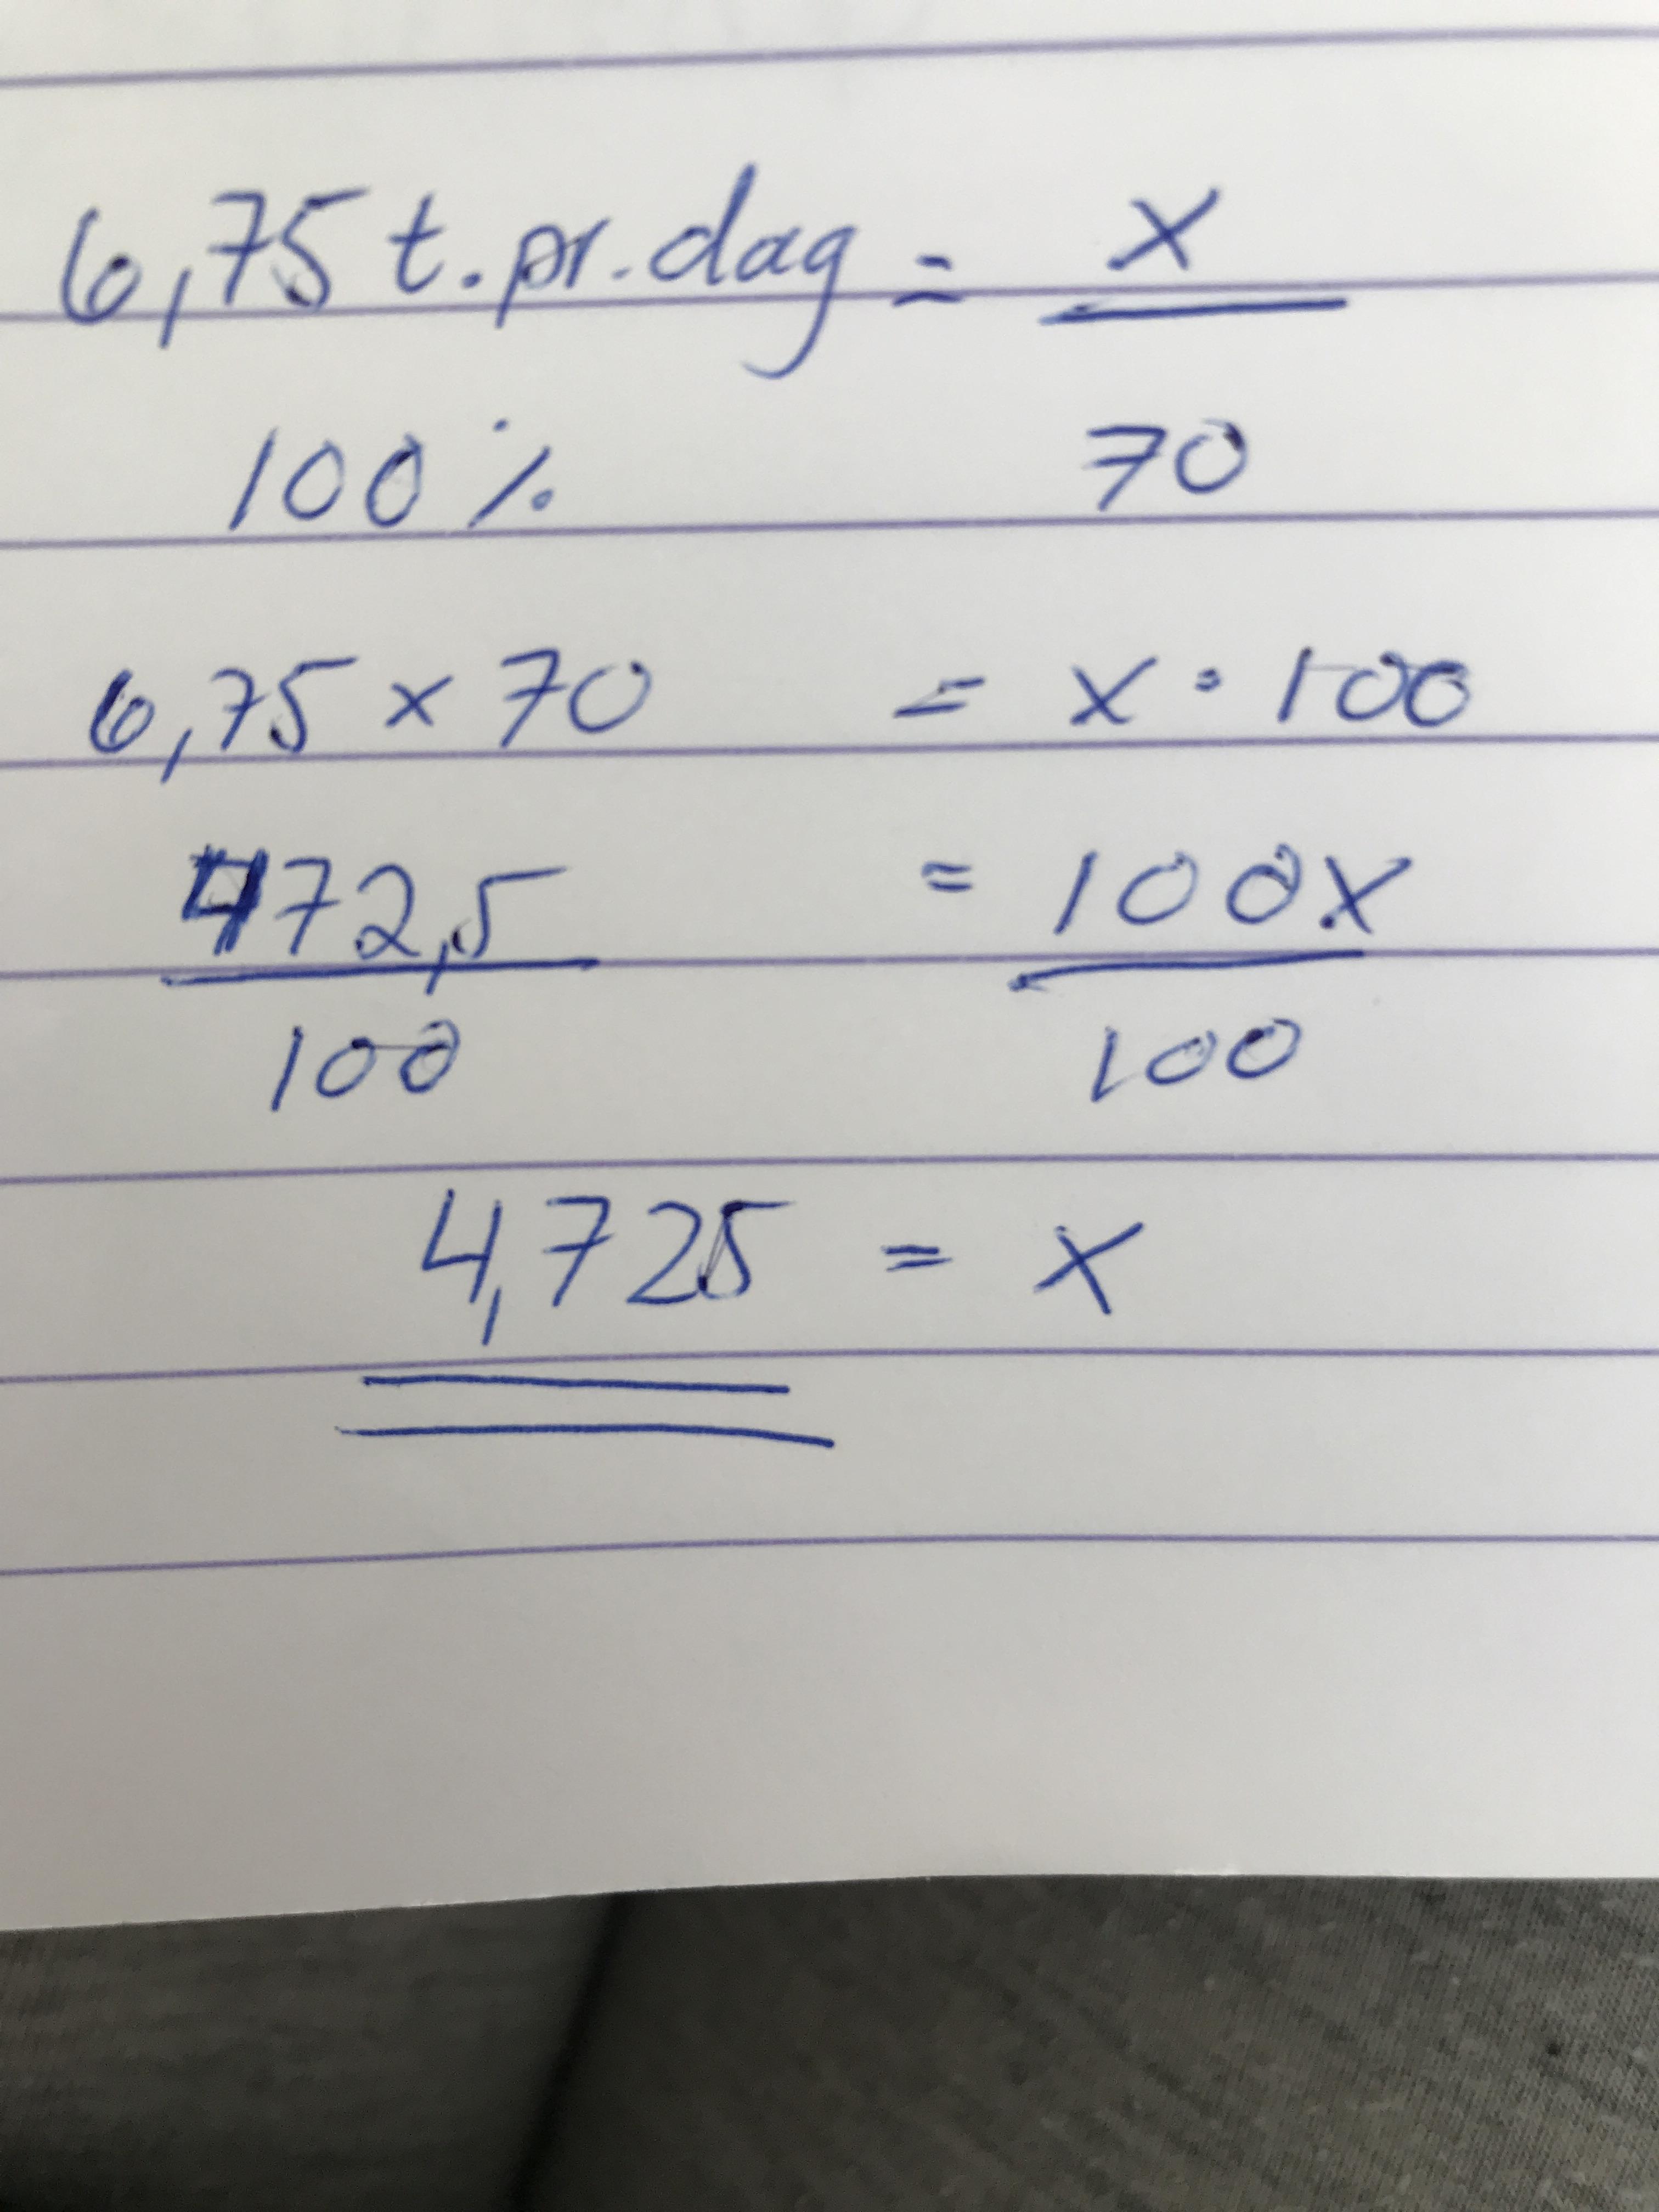 6,75 t. pr. dag = x
100 % 70
6,75 x 70 = x · 100
472,5 = 100x
100 100
4,725 = x